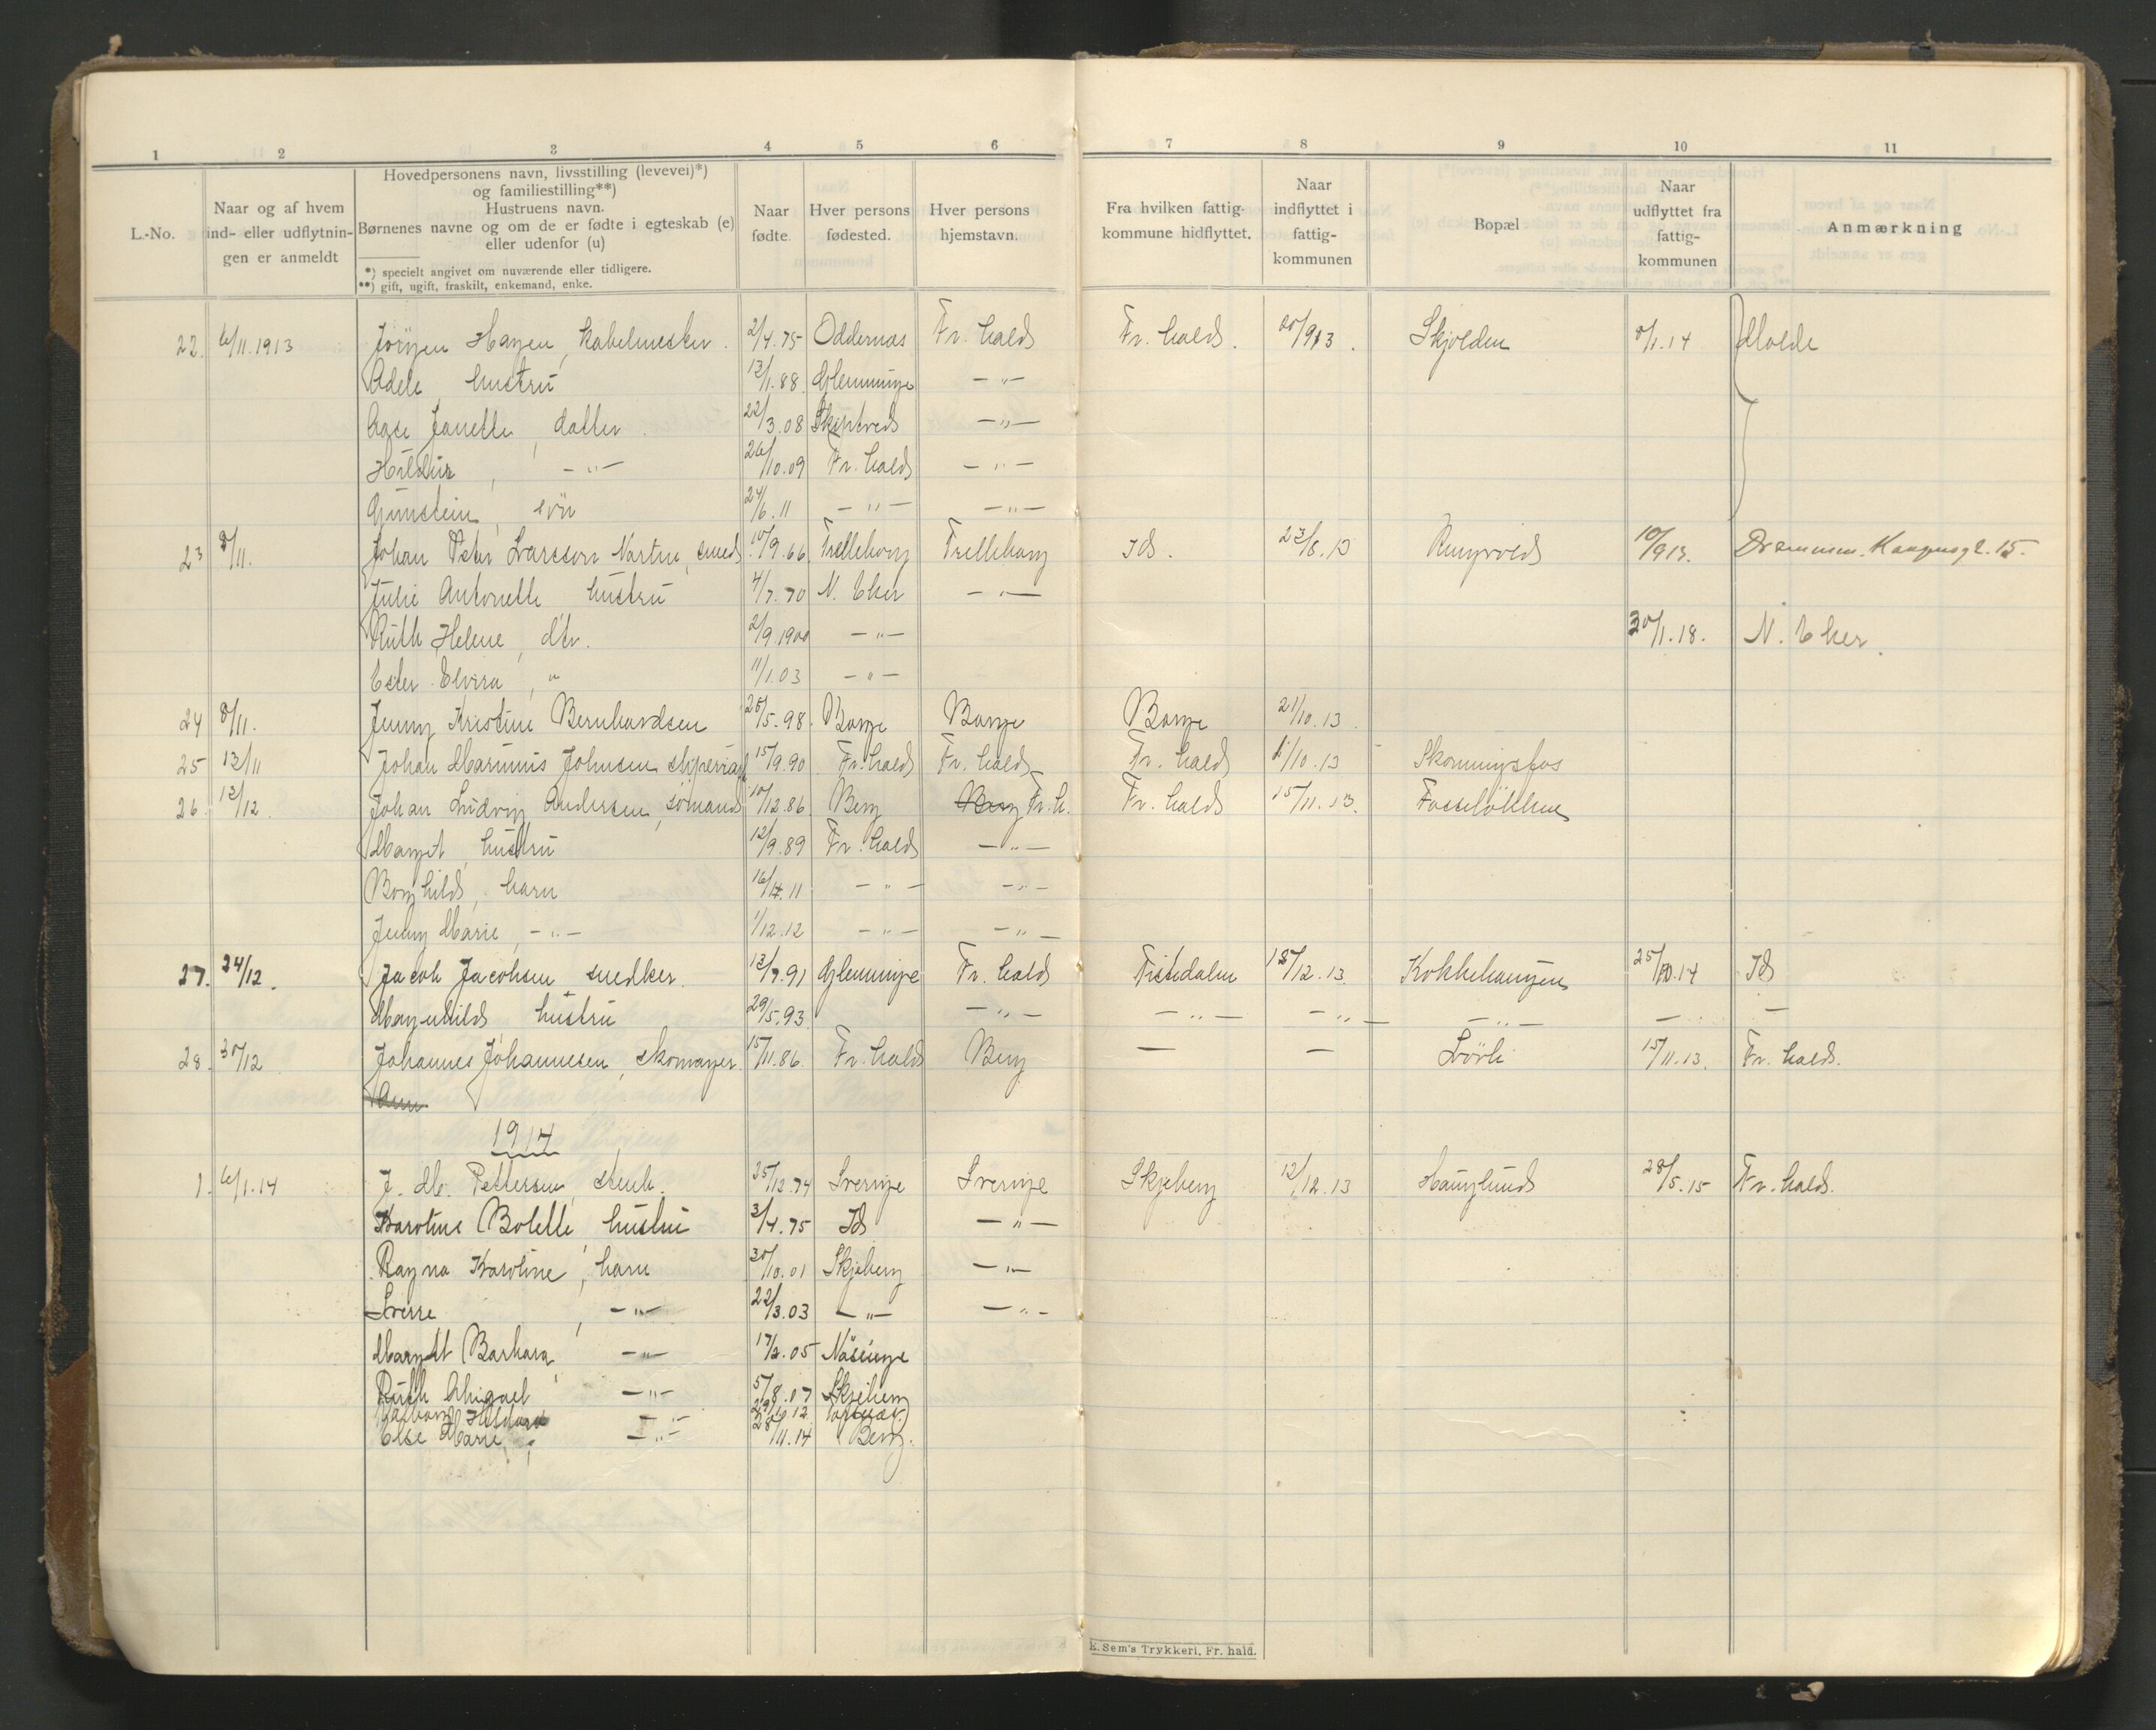 1 2 3 4 5 6 7 8 9 10 11
L.-No.
Naar og af hvem
ind- eller udflytnin-
gen er anmeldt
Hovedpersonens navn, livsstilling (levevei)*)
og familiestilling**)
Hustruens navn.
Børnenes navne og om de er fødte i egteskab (e)
eller udenfor (u)
*) specielt angivet om nuværende eller tidligere.
**) gift, ugift, fraskilt, enkemand, enke.
Naar
fødte.
Hver persons
fødested.
Hver persons
hjemstavn.
Fra hvilken fattig-
kommune hidflyttet.
Naar
indflyttet i
fattig-
kommunen
Bopæl
Naar
udflyttet fra
fattig-
kommunen
Anmærkning
22. 6/11.1913 Jörgen Hagen, 2/4.75 Oddernæs Fr. hald Fr. hald. 20/913. Skjolden 8/1.14 Molde
Adele, hustru 13/1.88. Glemminge —"—
Aase Janette, datter. 22/3.08 Skiptved —"—
Hildur, —"— 26/10.09 Fr. hald —"—
Gunstein, sön 24/6.11 —"— —"—
23 8/11. Johan Peter Larsson Nartne, smed 10/9.66 Trelleborg Trelleborg Id. 23/8.13 Ringvold 10/913. Drammen. Kongensgt. 15.
Julie Antonette, hustru 4/7.70 N. Eker —"—
Ruth Helene, dtr. 2/9.1900 —"— 30/1.18. N. Eker.
Ester Elvira, " 11/1.03 —"—
24 8/11. Jenny Kristine Bernhardsen 20/5.98. Borge Borge Borge 21/10.13.
25 13/11 Johan Marinius Johnsen, 15/9.90 Fr. hald Fr. hald Fr. hald /10.13 Skonningsfos
26 12/12. Johan Ludvig Andersen, sömand 10/12.86 Berg Berg Fr. h. Fr. hald 15/11.13. Fosselökken
Margit, hustru 12/9.89 Fr. hald —"—
Borghild, barn 16/4.11 —"— —"—
Jenny Marie, —"— 1/12.12 —"— —"—
27. 24/12. Jacob Jacobsen, snedker. 13/7.91 Glemminge Fr. hald Tistedalen 18/12.13. Kokkehaugen 25/10.14 Id
Magnhild, hustru 29/5.93. —"— —"— —"— —"— — —
28. 30/12 Johannes Johannesen, skomager. 15/11.86. Fr. hald Berg — — Lövli 15/11.13. Fr. hald.
Anna
1914
1. 6/1.14 J. M. Pettersen, stenh. 25/12.74 Sverige Sverige Skjeberg 12/12.13 Hauglund 28/5.15 Fr. hald.
Karoline Bolette, hustru 3/4.75 Id —"—
Ragna Karoline, barn 30/10.01 Skjeberg —"—
Sverre, —"— 22/3.03 —"— —"—
Margit Barbara, —"— 17/2.05 Näsinge
Ruth Abigael, —"— 5/8.07 Skjeberg
—"— 29/ .12
Else Marie, —"— 28/11.14 Berg.
E. Sem's Trykkeri, Fr. hald.